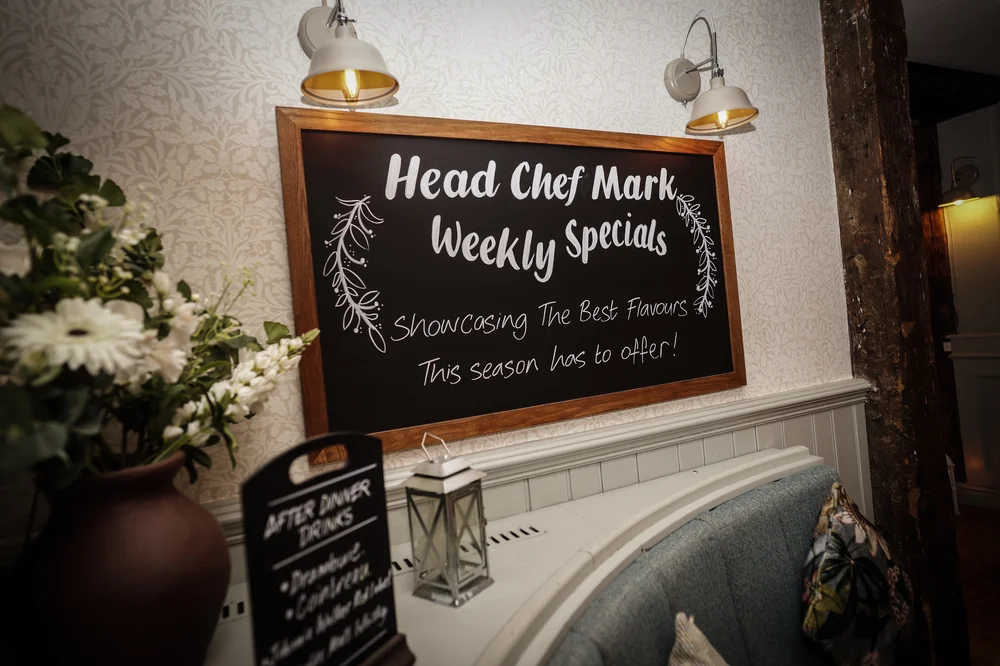 Head Chef Mark
Weekly Specials
Showcasing The Best Flavours
This season has to offer!
AFTER DINNER
DRINKS
•Drambuie
•Cointreau
Johnnie Walker Red Label
Malt Whisky